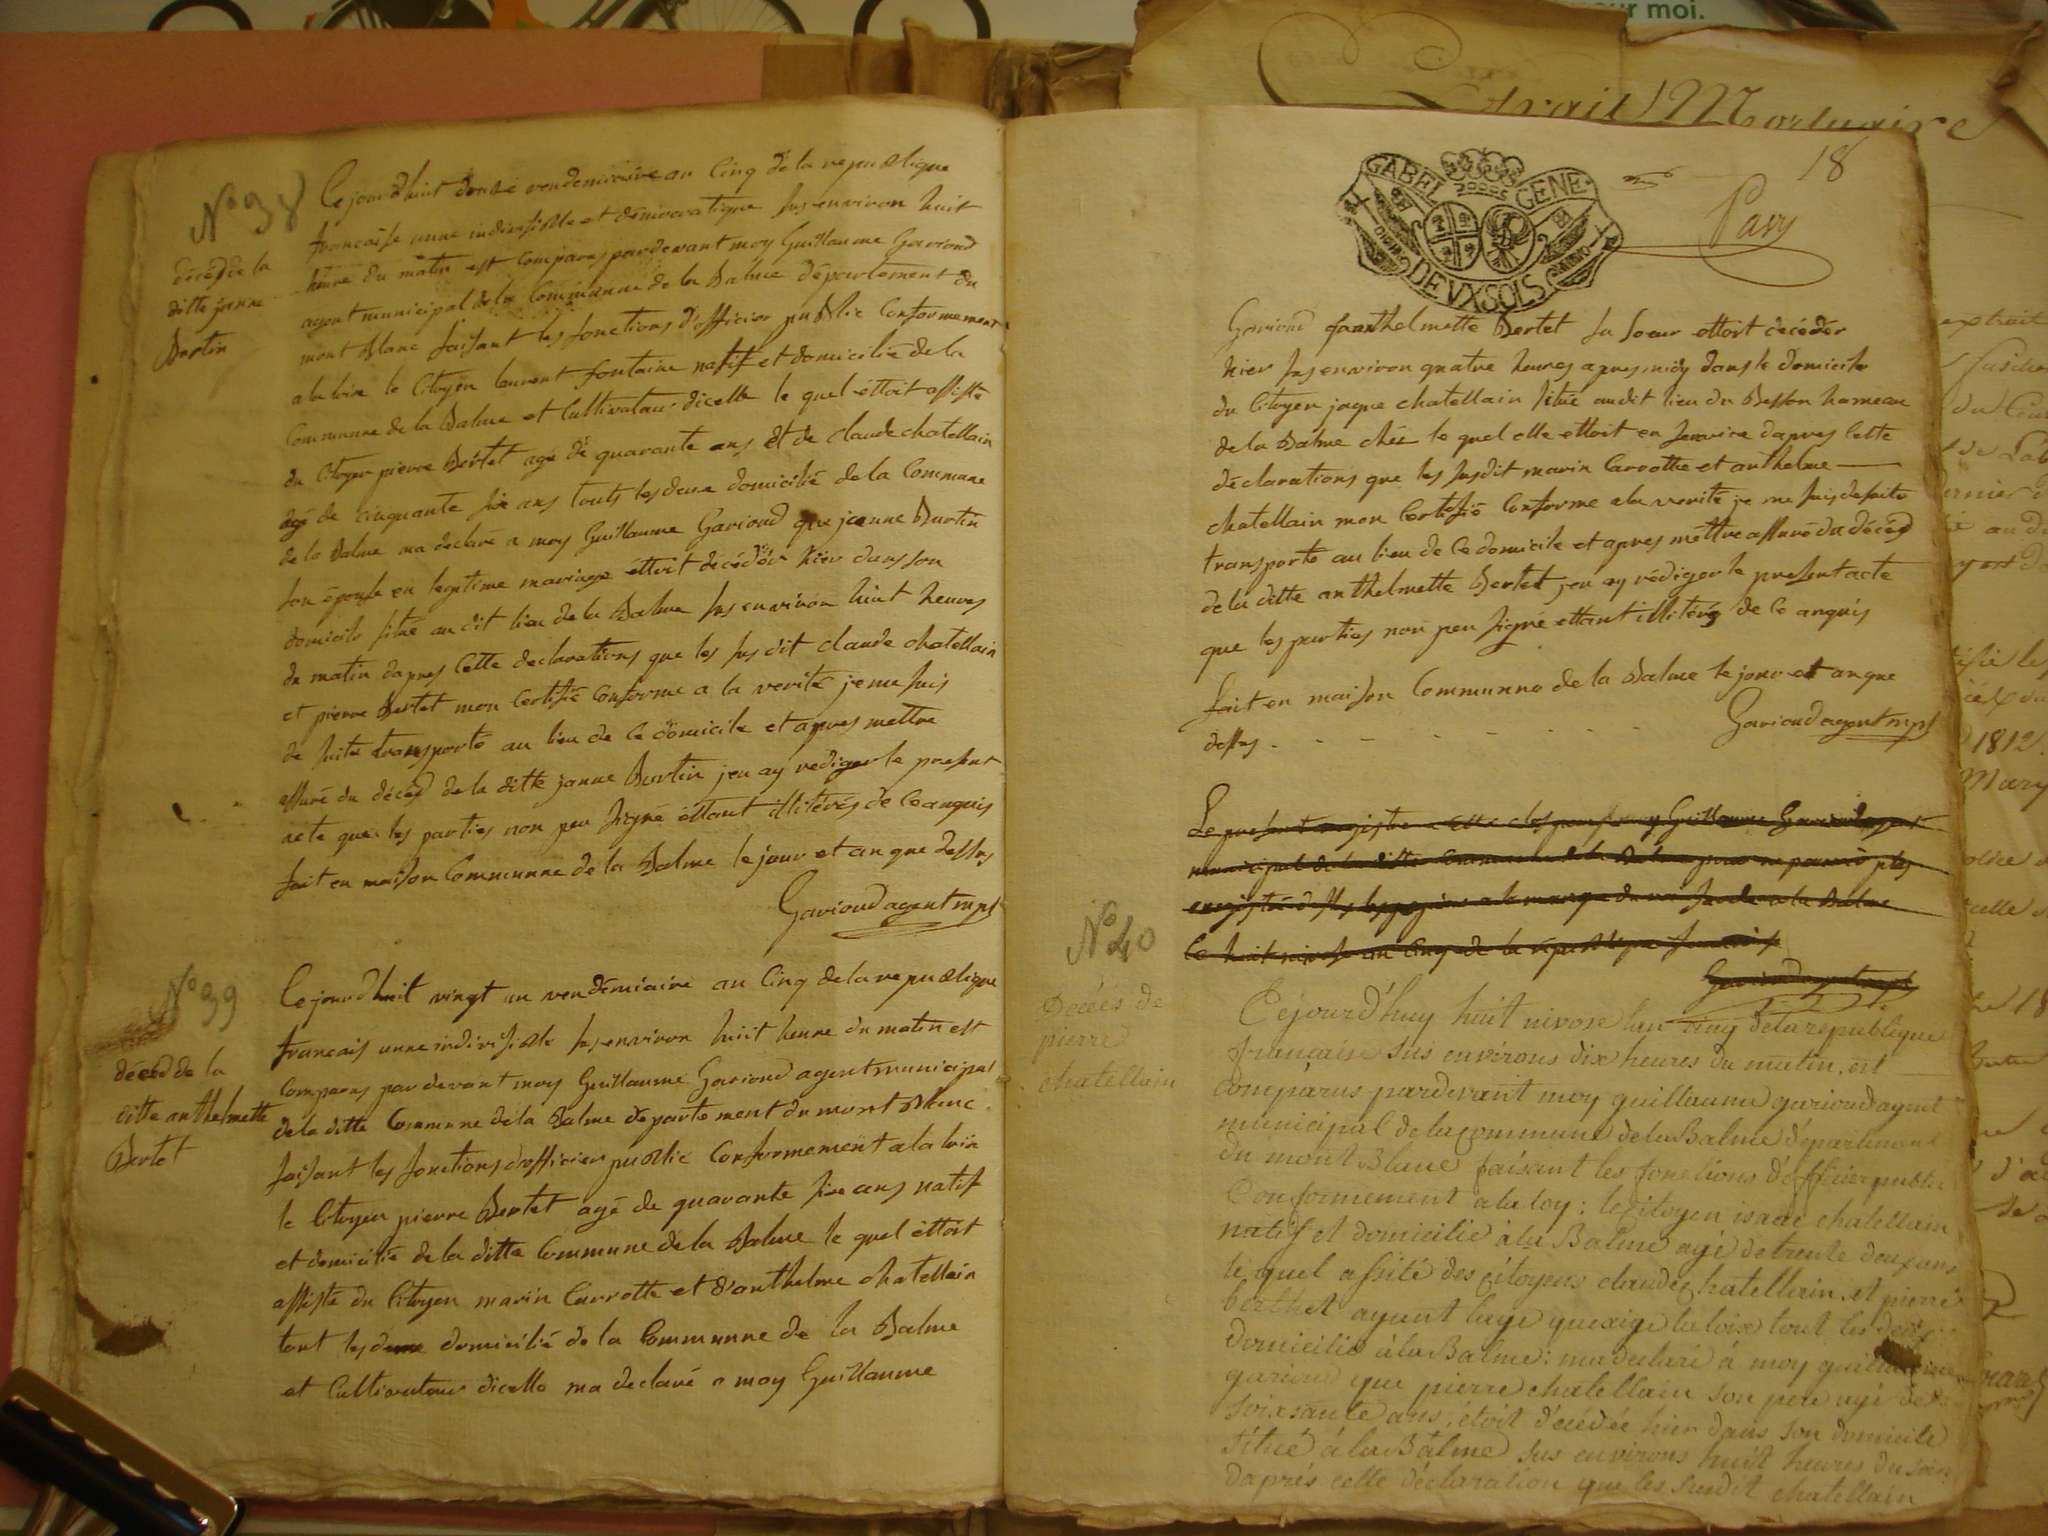 N° 38
décéd de la
ditte janne
Bertin
Cejourdhuit douze vendemiaire an Cinq de la republique
francaise unne indivisible et démocratique sus environ huit
heure du matin est comparus pardevant moy Guillaume Gavioud
agent municipal de la Communne de la Balme département du
mont Blanc faisant les fonctions d'officier public Conformement
a la loix le Citoyen laurent fontaine natif et domicilié de la
Communne de la Balme et Cultivateur dicelle le quel éttoit assisté
du Citoyen pierre Bertet agé de quarante ans et de claude chatellain
agé de cinquante six ans touts les deux domicilié de la Commune
de la Balme ma declaré a moy Guillaume Garioud que jeanne Burtin
son épouse en legitime mariage éttoit décédér hier dans son
domicile situé au dit lieu de la Balme sus environ huit heures
du matin dapres Cette declarations que les sus dit claude chatellain
et pierre Bertet mon Certifié Conforme a la verité je me suis
de suite transporté au lieu de Ce domicile et apres mettre
assuré du décéd de la ditte janne Burtin jen ay rediger le present
acte que les parties non peu signé éttant illitérés de Ce anquis
fait en maison Communne de la Balme le jour et an que dessus
Garioud agent mpl
N° 39
décéd de la
ditte anthelmette
Bertet
Cejourdhuit vingt un vendémiaire an Cinq de la republique
francais unne indivisible sus environ huit heure du matin est
Comparus pardevant moy Guillaume Garioud agent municipal
de la ditte Commune de la Balme département du mont Blanc
faisant les fonctions d'officier public Conformement a la loix
le Citoyen pierre Bertet agé de quarante six ans natif
et domicilié de la ditte Commune de la Balme le quel éttoit
assisté du Citoyen marin Carrotte et d'anthelme chatellain
tout les deux domicilié de la Communne de la Balme
et Cultivateur dicelle ma declaré a moy Guillaume
our moi.
Extrait Mortuaire
18
Pavy
GABEL GENE
DEVX SOLS
Garioud qanthelmette Bertet sa soeur ettoit décédér
hier sus environ quatre heures apresmidy dans le domicile
du Citoyen jaque chatellain situé audit lieu du Besson hameau
de la Balme chéz le quel elle ettoit en service dapres Cette
déclarations que les susdit marin Carrotte et anthelme
chatellain mon Certifié Conforme a la verité je me suis de suite
transporté au lieu de Ce domicile et apres mettre assuré du décéd
de la ditte anthelmette Bertet jen ay rédiger le present acte
que les parties non peu signé ettant illitérés de Ce anquis
fait en maison Communne de la Balme le jour et an que
dessus
Garioud agent mpl
Le present registre a été clos par moy Guillaume Garioud agent
municipal de la ditte Commune de la Balme pour ne pouvoir plus
de la Balme
Ce huit nivose an Cinq de la république francaise
N° 40
Décés de
pierre
chatellain
Cejourd'huy huit nivose lan cinq de la republique
française sus environs dix heures du matin, est
compârus pardevant moy guillaume garioud agent
municipal de la commune de la Balme département
du mont Blanc faisant les fonctions d'officier public
Conformement a la loy : le citoyen isaac chatellain
natif et domicilié à la Balme agé de trente deux ans
le quel assité des citoyens claude chatellain, et pierre
berthet ayant lage quexige la loix tout les deux
domicilié à la Balme : ma declaré à moy guillaume
garioud que pierre chatellain son pere agé de
soixsante ans, étoit décédée hier dans son domicile
situé à la Balme sus environs huit heures du soir
daprés cette déclaration que les susdit chatellain
extrait
1812
Mary